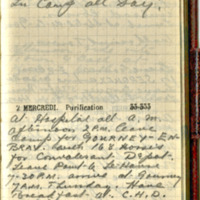 in Camp all Day.
2 MERCREDI. Purification 33-333
At Hospital all A.M.
afternoon 2 P.M. leave
Camp for GOURNEY-EN-
BRAY with 168 Horses
for Convalescent Depot.
leave Pont de
7-30 P.M. arrive at Gournay
7 A.M. Thursday. Have
Breakfast at C.H.D.